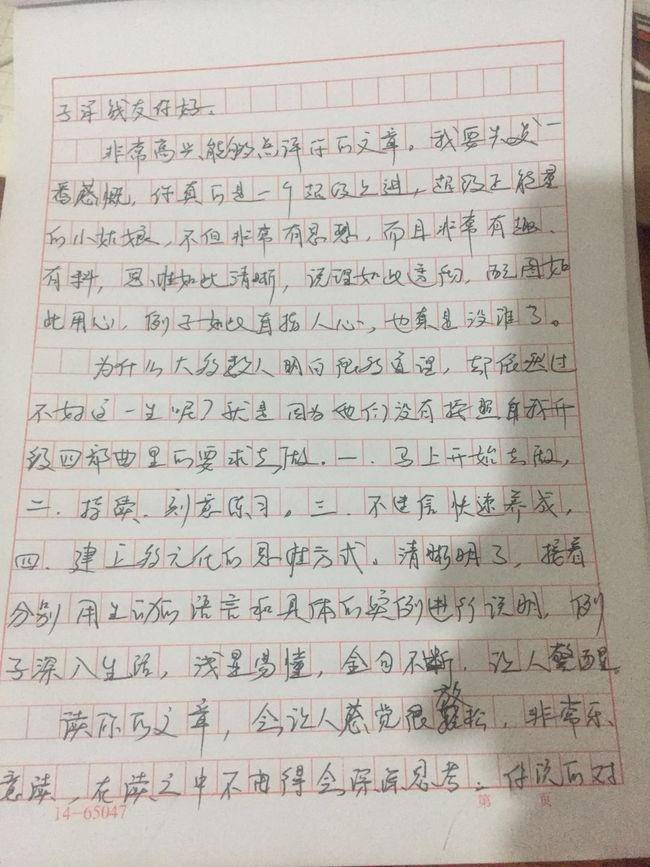 子洋战友你好。
非常高兴能够点评你的文章。我要先发一
番感慨,你真的是一个超级上进,超级正能量
的小姑娘,不但非常有思想,而且非常有趣、
有料,思维如此清晰,说理如此透彻,配图如
此用心,例子如此直指人心,也真是没谁了。
为什么大多数人明白很多道理,却依然过
不好这一生呢?就是因为他们没有按照自我升
级四部曲里的要求去做。一.马上开始去做,
二.持续、刻意练习。三.不迷信快速养成,
四.建立多元化的思维方式。清晰明了,接着
分别用生动的语言和具体的实例进行说明,例
子深入生活,浅显易懂,金句不断,让人警醒。
读你的文章,会让人感觉很放松,非常乐
意读,在读之中不由得会深深思考。你说的对
14-65047
第 页